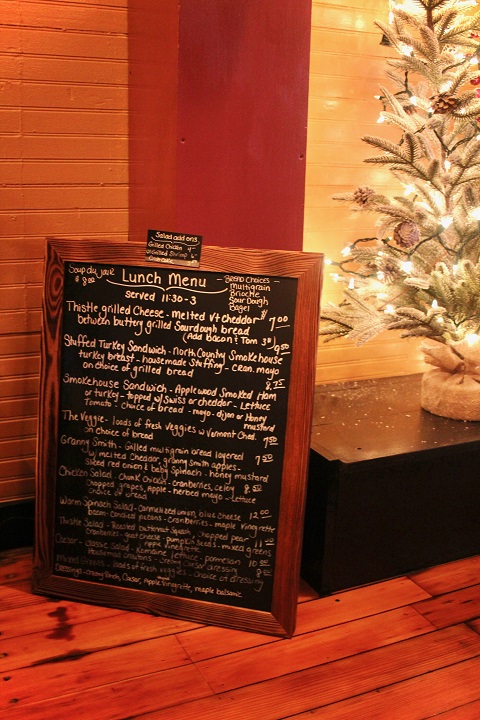 Salad add ons
Grilled Chicken 4
Grilled Shrimp 6
Soup du jour
$ 8.00
Lunch Menu
Served 11:30-3
Bread Choices -
multigrain
Brioche
Sour Dough
Bagel
Thistle grilled Cheese - melted Vt cheddar $ 7.00
between buttery grilled Sourdough bread
(Add bacon & Tom 3
Stuffed Turkey Sandwich - North Country Smokehouse 9.50
turkey breast - housemade Stuffing - cran. mayo
on choice of grilled bread
Smokehouse Sandwich - Applewood Smoked Ham 8.75
or turkey - topped w/ Swiss or cheddar - Lettuce
Tomato - choice of bread - mayo - dijon or Honey
mustard
The Veggie - loads of fresh veggies w Vermont Ched. 7.50
on choice of bread
Granny Smith - Grilled multigrain bread layered 7.50
w/ melted Cheddar, granny smith apples -
sliced red onion & baby Spinach - honey mustard
Chicken Salad - chunk chicken - cranberries, celery 8.50
chopped grapes, Apple - herbed mayo - Lettuce
choice of bread
Warm Spinach Salad - Caramelized onion, blue cheese 12.00
bacon - Candied pecans - Cranberries - maple Vinegrette
Thistle Salad - Roasted butternut Squash, chopped pear 11.00
Cranberries, goat cheese, pumpkin seeds - mixed greens
Apple Vinegrette
Caesar - classic Salad - Romaine lettuce, parmesan 10.00
Housemade croutons - Creamy Caesar dressing
Mixed Greens - loads of fresh veggies - choice of dressing 8.50
Dressings - creamy Ranch, Caesar, Apple Vinegrette, maple balsamic